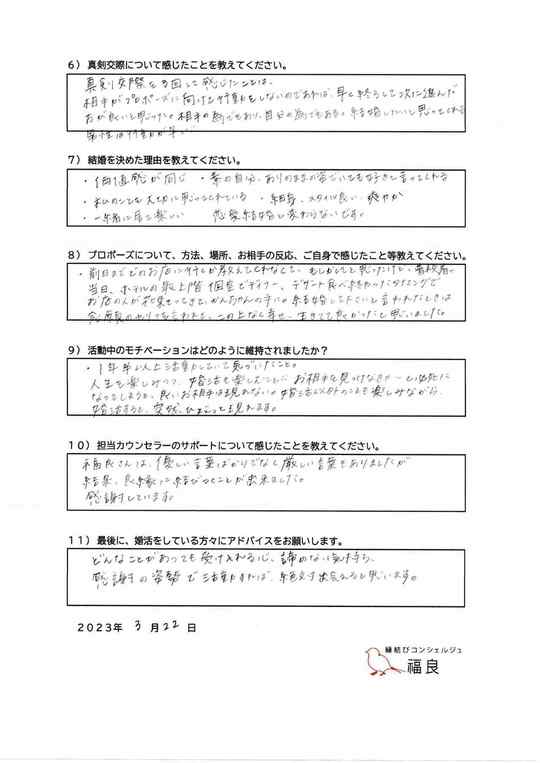 6）真剣交際について感じたことを教えてください。
真剣交際を3回して感じたことは、
相手がプロポーズに向けた行動をしないのであれば、早く終らして次に進んだ
方が良いと思った。相手の為でもあり、自分の為でもある。結婚したいと思ってくれる
男性は行動が早い
7）結婚を決めた理由を教えてください。
・価値感が同じ ・素の自分、ありのままの姿でいても好きと言ってくれる
・私のことを大切に思ってくれている ・細身、スタイル良い、爽やか
・一緒に居て楽しい 恋愛結婚と変わらないです。
8）プロポーズについて、方法、場所、お相手の反応、ご自身で感じたこと等教えてください。
・前日までどのお店に行くか教えてくれなくて、もしかしてと思ったけど、普段着。
当日、ホテルの最上階 個室でディナー、デザート食べ終わったタイミングで
お店の人が花束もってきて、結婚して下さいと言われたときは
この上なく幸せ、生きてて良かったと思いました。
9）活動中のモチベーションはどのように維持されましたか？
・1年半以上活動していて気づいたこと。
人生を楽しみつつ、婚活も楽しむこと。お相手を見つけなきゃーと必死に
なってしまうと、良いお相手は現れない。婚活以外のことも楽しみながら、
婚活すると、突然、ひょこっと現れます。
10）担当カウンセラーのサポートについて感じたことを教えてください。
福良さんは、優しい言葉ばかりでなく厳しい言葉もありましたが
結果、良縁に結びつくことが出来ました。
感謝しています。
11）最後に、婚活をしている方々にアドバイスをお願いします。
どんなことがあっても受け入れる心、諦めない気持ち、
感謝の姿勢で活動すれば、絶対出会えると思います。
2023年 3 月 22 日
縁結びコンシェルジュ
福良